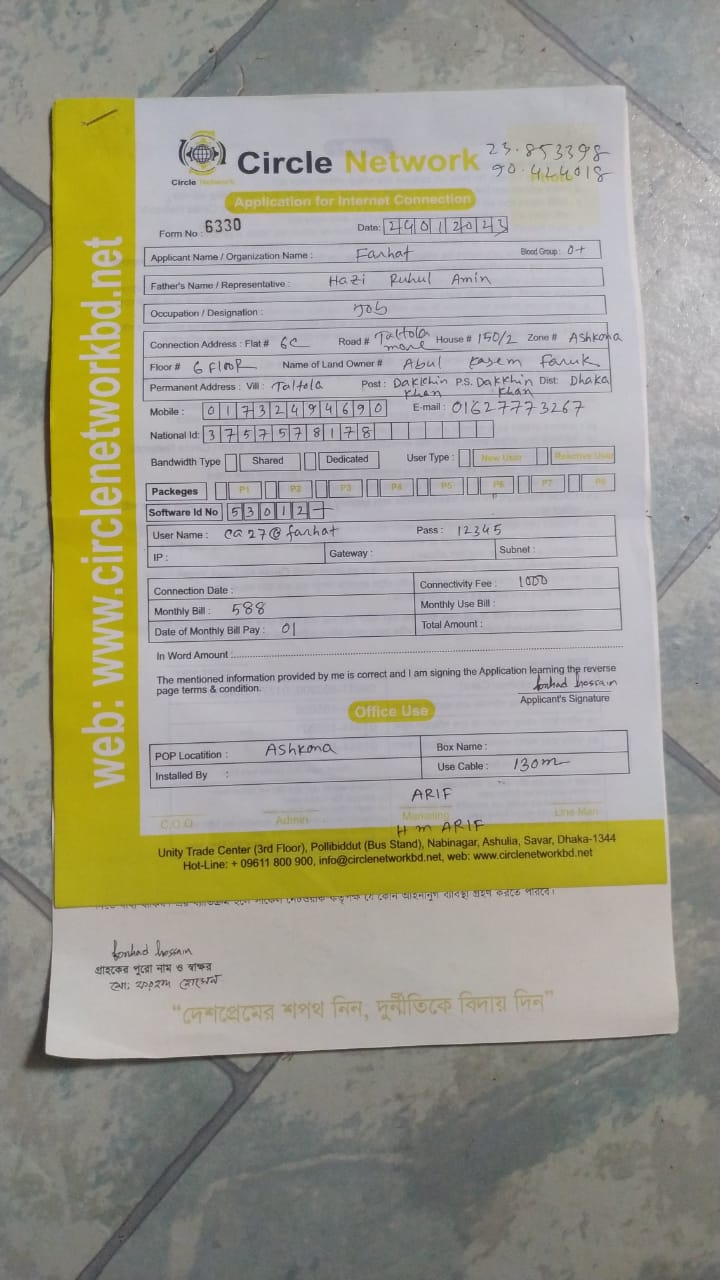 web: www.circlenetworkbd.net
Circle Network
Circle Network
23.853398
90.424018
Application for Internet Connection
Form No : 6330
Date: 24012023
Applicant Name / Organization Name : Farhat Blood Group : O+
Father's Name / Representative : Hazi Ruhul Amin
Occupation / Designation : Job
Connection Address : Flat # 6C Road # Taltola more House # 150/2 Zone # Ashkona
Floor # 6 FlooR Name of Land Owner # Abul Kasem Faruk
Permanent Address : Vill : Taltola Post : Dakkhin Khan P.S. Dakkhin Khan Dist: Dhaka
Mobile : 01732494690 E-mail : 01627773267
National Id: 3757578178
Bandwidth Type Shared Dedicated User Type : New User Reactive User
Packeges P1 P2 P3 P4 P5 P6 P7 P8
Software Id No 53012
User Name : ca27@farhat Pass : 12345
IP : Gateway : Subnet :
Connection Date : Connectivity Fee : 1000
Monthly Bill : 588 Monthly Use Bill :
Date of Monthly Bill Pay : 01 Total Amount :
In Word Amount :
The mentioned information provided by me is correct and I am signing the Application learning the reverse
page terms & condition.
farhad hossain
Applicant's Signature
Office Use
POP Locatition : Ashkona Box Name :
Installed By : Use Cable : 130m
ARIF
C.O.O Admin Marketing Line Man
H m ARIF
Unity Trade Center (3rd Floor), Pollibiddut (Bus Stand), Nabinagar, Ashulia, Savar, Dhaka-1344
Hot-Line: + 09611 800 900, info@circlenetworkbd.net, web: www.circlenetworkbd.net
farhad hossain
গ্রাহকের পুরো নাম ও স্বাক্ষর
মো: ফরহাদ হোসেন
“দেশপ্রেমের শপথ নিন, দুর্নীতিকে বিদায় দিন”